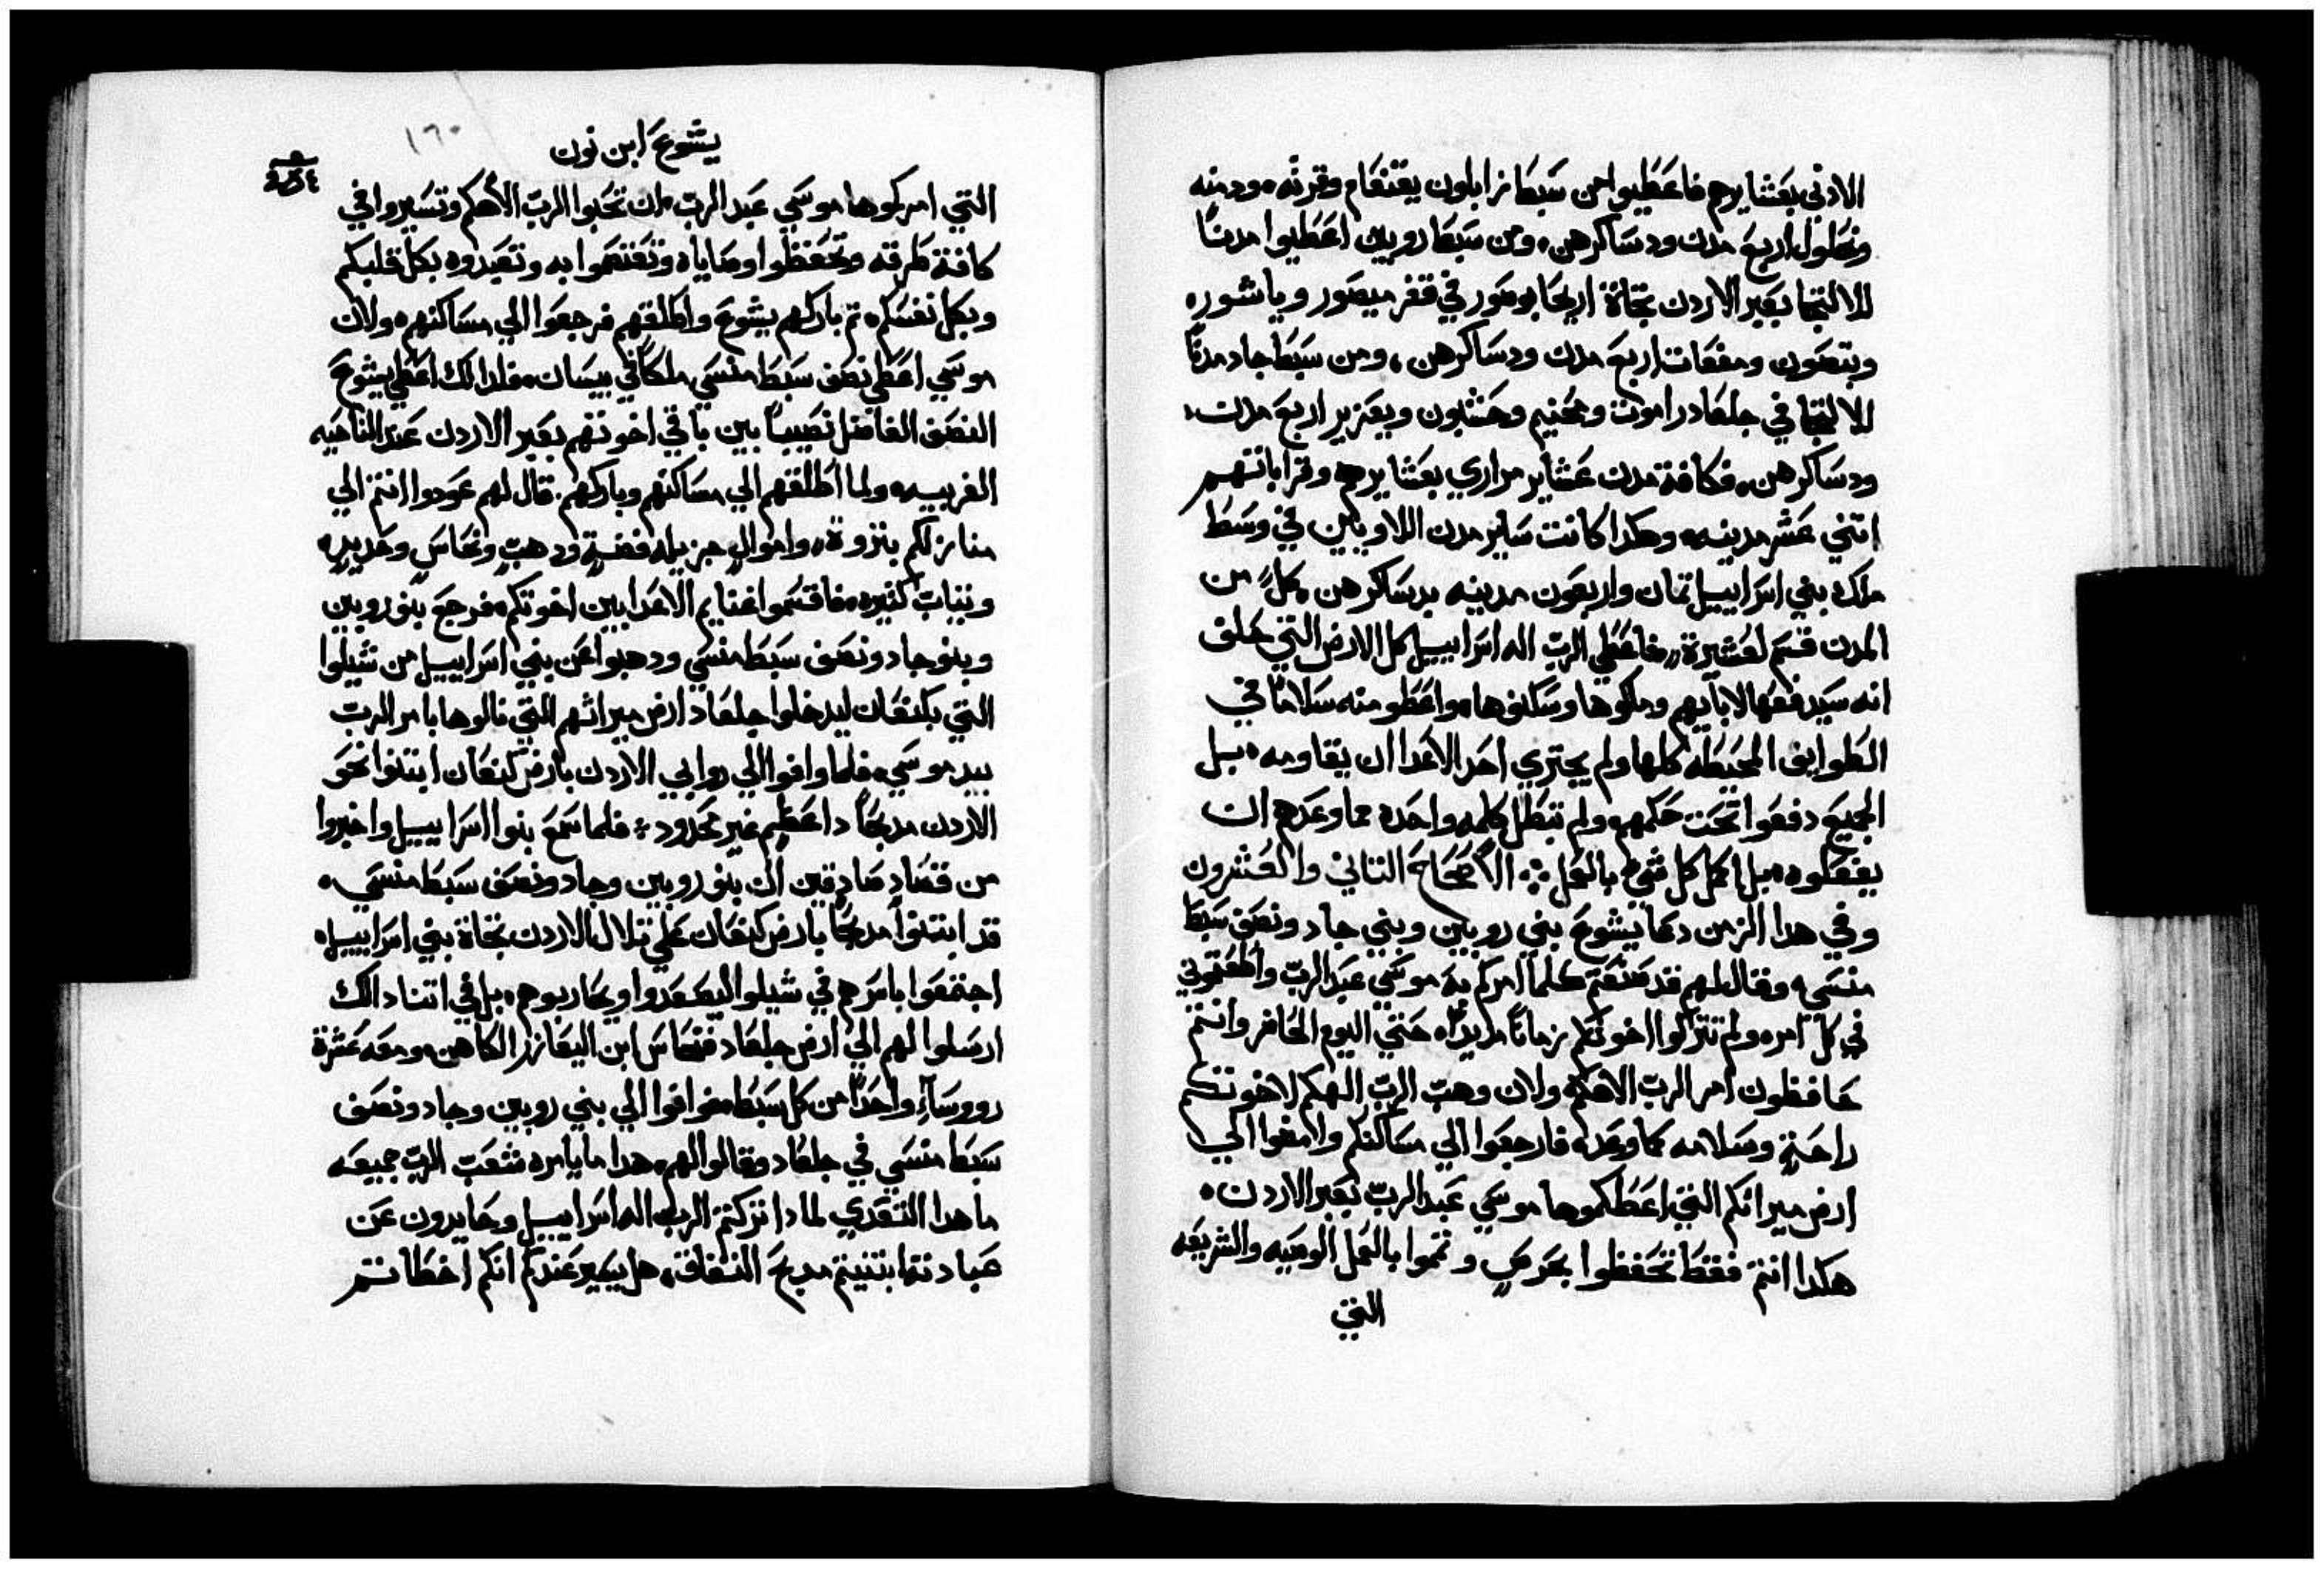 الادني بعشايرهم فاعطيوا من سبط زابلون يقنعام وقرته ودمنه
ونهلول اربع مدن ودساكرهن ومن سبط روبين اعطيوا مدنًا
للالتجا بعبر الاردن تجاة اريحا بوصور في قفر ميصور وياشوره
وبتصون ومفعات اربع مدن ودساكرهن ومن سبط جاد مدنًا
للالتجا في جلعاد راموت ومحنيم وحشبون ويعزير اربع مدن
ودساكرهن فكافة مدن عشاير مراري بعشايرهم وقراباتهم
اتني عشر مدينه وهكدا كانت ساير مدن اللاويين في وسط
ملك بني اسراييل تمان واربعون مدينه بدساكرهن كل من
المدن قسم لعشيرة فاعطي الرب اله اسراييل كل الارض التي حلف
انه سيدفعها لابايهم وملكوها وسكنوها واعطو منه سلامًا في
الطوايف المحيطه كلها ولم يجتري احد الاعدا ان يقاومه بل
الجميع دفعوا تحت حكمهم ولم تبطل كلمه واحده مما وعدهم ان
يفعلوه بل اكمل كل شي بالعمل الاصحاح التاني والعشرون
وفي هدا الزمن دعا يشوع بني روبين وبني جاد ونصف سبط
منسي وقال لهم قد صنعتم كلما امركم به موسي عبد الرب واطعتموني
في كل امره ولم تتركوا اخوتكم زمانًا مديدًا حتي اليوم الحاضر وانتم
حافظون امر الرب الاهكم ولان وهب الرب الهكم لاخوتكم
راحة وسلامه كما وعد فارجعوا الي مساكنكم وامضوا الي
ارض ميراتكم التي اعطكموها موسي عبد الرب بعبر الاردن
هكدا انتم فقط تحفظوا بحرص وتتموا بالعمل الوصيه والشريعه
التي
يشوع ابن نون
١٦٠
التي امركوها موسي عبد الرب ان تحبوا الرب الاهكم وتسيروا في
كافة طرقه وتحفظوا وصاياه وتعتصموا به وتعبدوه بكل قلبكم
وبكل نفسكم تم باركهم يشوع واطلقهم فرجعوا الي مساكنهم ولان
موسي اعطي نصف سبط منسي ملكًا في بيسان فلدالك اعطي يشوع
النصف الفاضل نصيبًا بين باقي اخوتهم بعبر الاردن عند الناحيه
الغربيه ولما اطلقهم الي مساكنهم وباركهم قال لهم عودوا انتم الي
منازلكم بتروة واموال جزيله فضة ودهب ونحاس وحديد
وتياب كتيره فاقتسموا غنايم الاعدا بين اخوتكم فرجع بنو روبين
وبنو جاد ونصف سبط منسي ودهبوا عن بني اسراييل من شيلوا
التي بكنعان ليدخلوا جلعاد ارض ميراتهم التي نالوها بامر الرب
بيد موسي فلما وافوا الي روابي الاردن بارض كنعان ابتنوا نحو
الاردن مدبحًا داعظم غير محدود فلما سمع بنوا اسراييل واخبروا
من قصاد صادقين ان بنو روبين وجاد ونصف سبط منسي
قد ابتنوا مدبحًا بارض كنعان علي تلال الاردن تجاة بني اسراييل
اجتمعوا باسرهم في شيلوا ليصعدوا ويحاربوهم بل في اتنا دالك
ارسلوا لهم الي ارض جلعاد فنحاس ابن اليعازر الكاهن ومعه عشرة
رووسآء واحدًا من كل سبط فوافوا الي بني روبين وجاد ونصف
سبط منسي في جلعاد وقالوا لهم هدا ما يامره شعب الرب جميعه
ما هدا التعدي لمادا تركتم الرب اله اسراييل وحايدون عن
عبادتة ابتنيتم مدبح النفاق هل يسير عندكم انكم اخطاتم